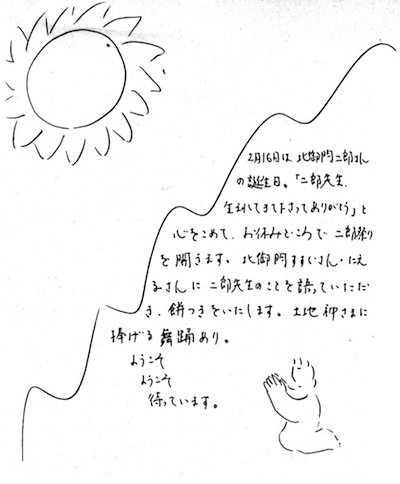 2月16日は 北御門二郎さん
の誕生日。「二郎先生、
生まれてきて下さってありがとう」と
心をこめて、お休みどころで 二郎祭り
を開きます。 北御門すすぐさん・たえ
るさんに 二郎先生のことを語っていただ
き、餅つきをいたします。土地神さまに
捧げる 舞踊あり。
ようこそ
ようこそ
待っています。